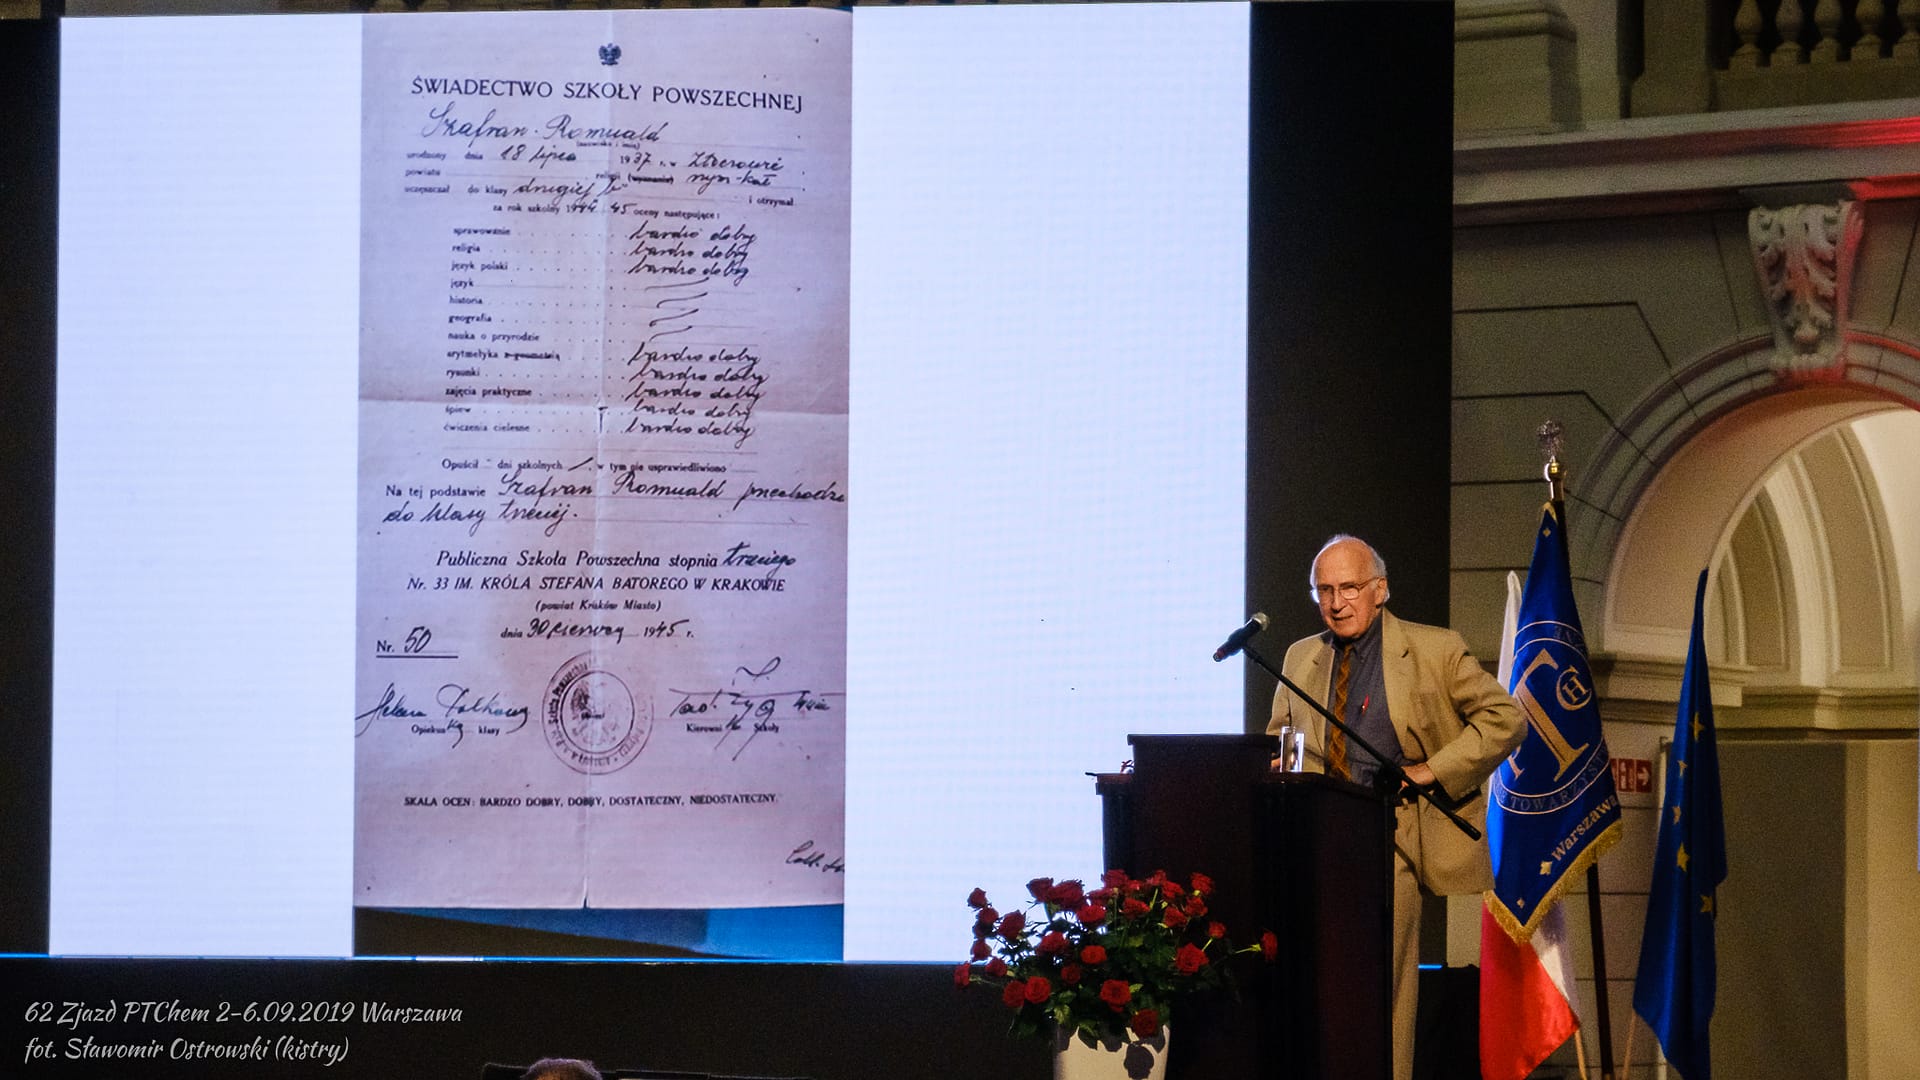 ŚWIADECTWO SZKOŁY POWSZECHNEJ
Szafran Romuald
(nazwisko i imię)
urodzony dnia 18 lipca 1937 r. w Złoczowie
powiatu religii (wyznania) rzym-kat
uczęszczał do klasy drugiej b i otrzymał
za rok szkolny 1944 45 oceny następujące:
sprawowanie bardzo dobry
religia bardzo dobry
język polski bardzo dobry
język
historia
geografia
nauka o przyrodzie
arytmetyka z geometrią bardzo dobry
rysunki bardzo dobry
zajęcia praktyczne bardzo dobry
śpiew bardzo dobry
ćwiczenia cielesne bardzo dobry
Opuścił dni szkolnych, w tym nie usprawiedliwiono
Na tej podstawie Szafran Romuald przechodzi
do klasy trzeciej.
Publiczna Szkoła Powszechna stopnia trzeciego
Nr. 33 IM. KRÓLA STEFANA BATOREGO W KRAKOWIE
(powiat Kraków Miasto)
dnia 30 czerwca 1945 r.
Nr. 50
Opiekun klasy Kierownik Szkoły
SKALA OCEN: BARDZO DOBRY, DOBRY, DOSTATECZNY, NIEDOSTATECZNY.
TOWARZYST
Warszawa
62 Zjazd PTChem 2-6.09.2019 Warszawa
fot. Sławomir Ostrowski (kistry)